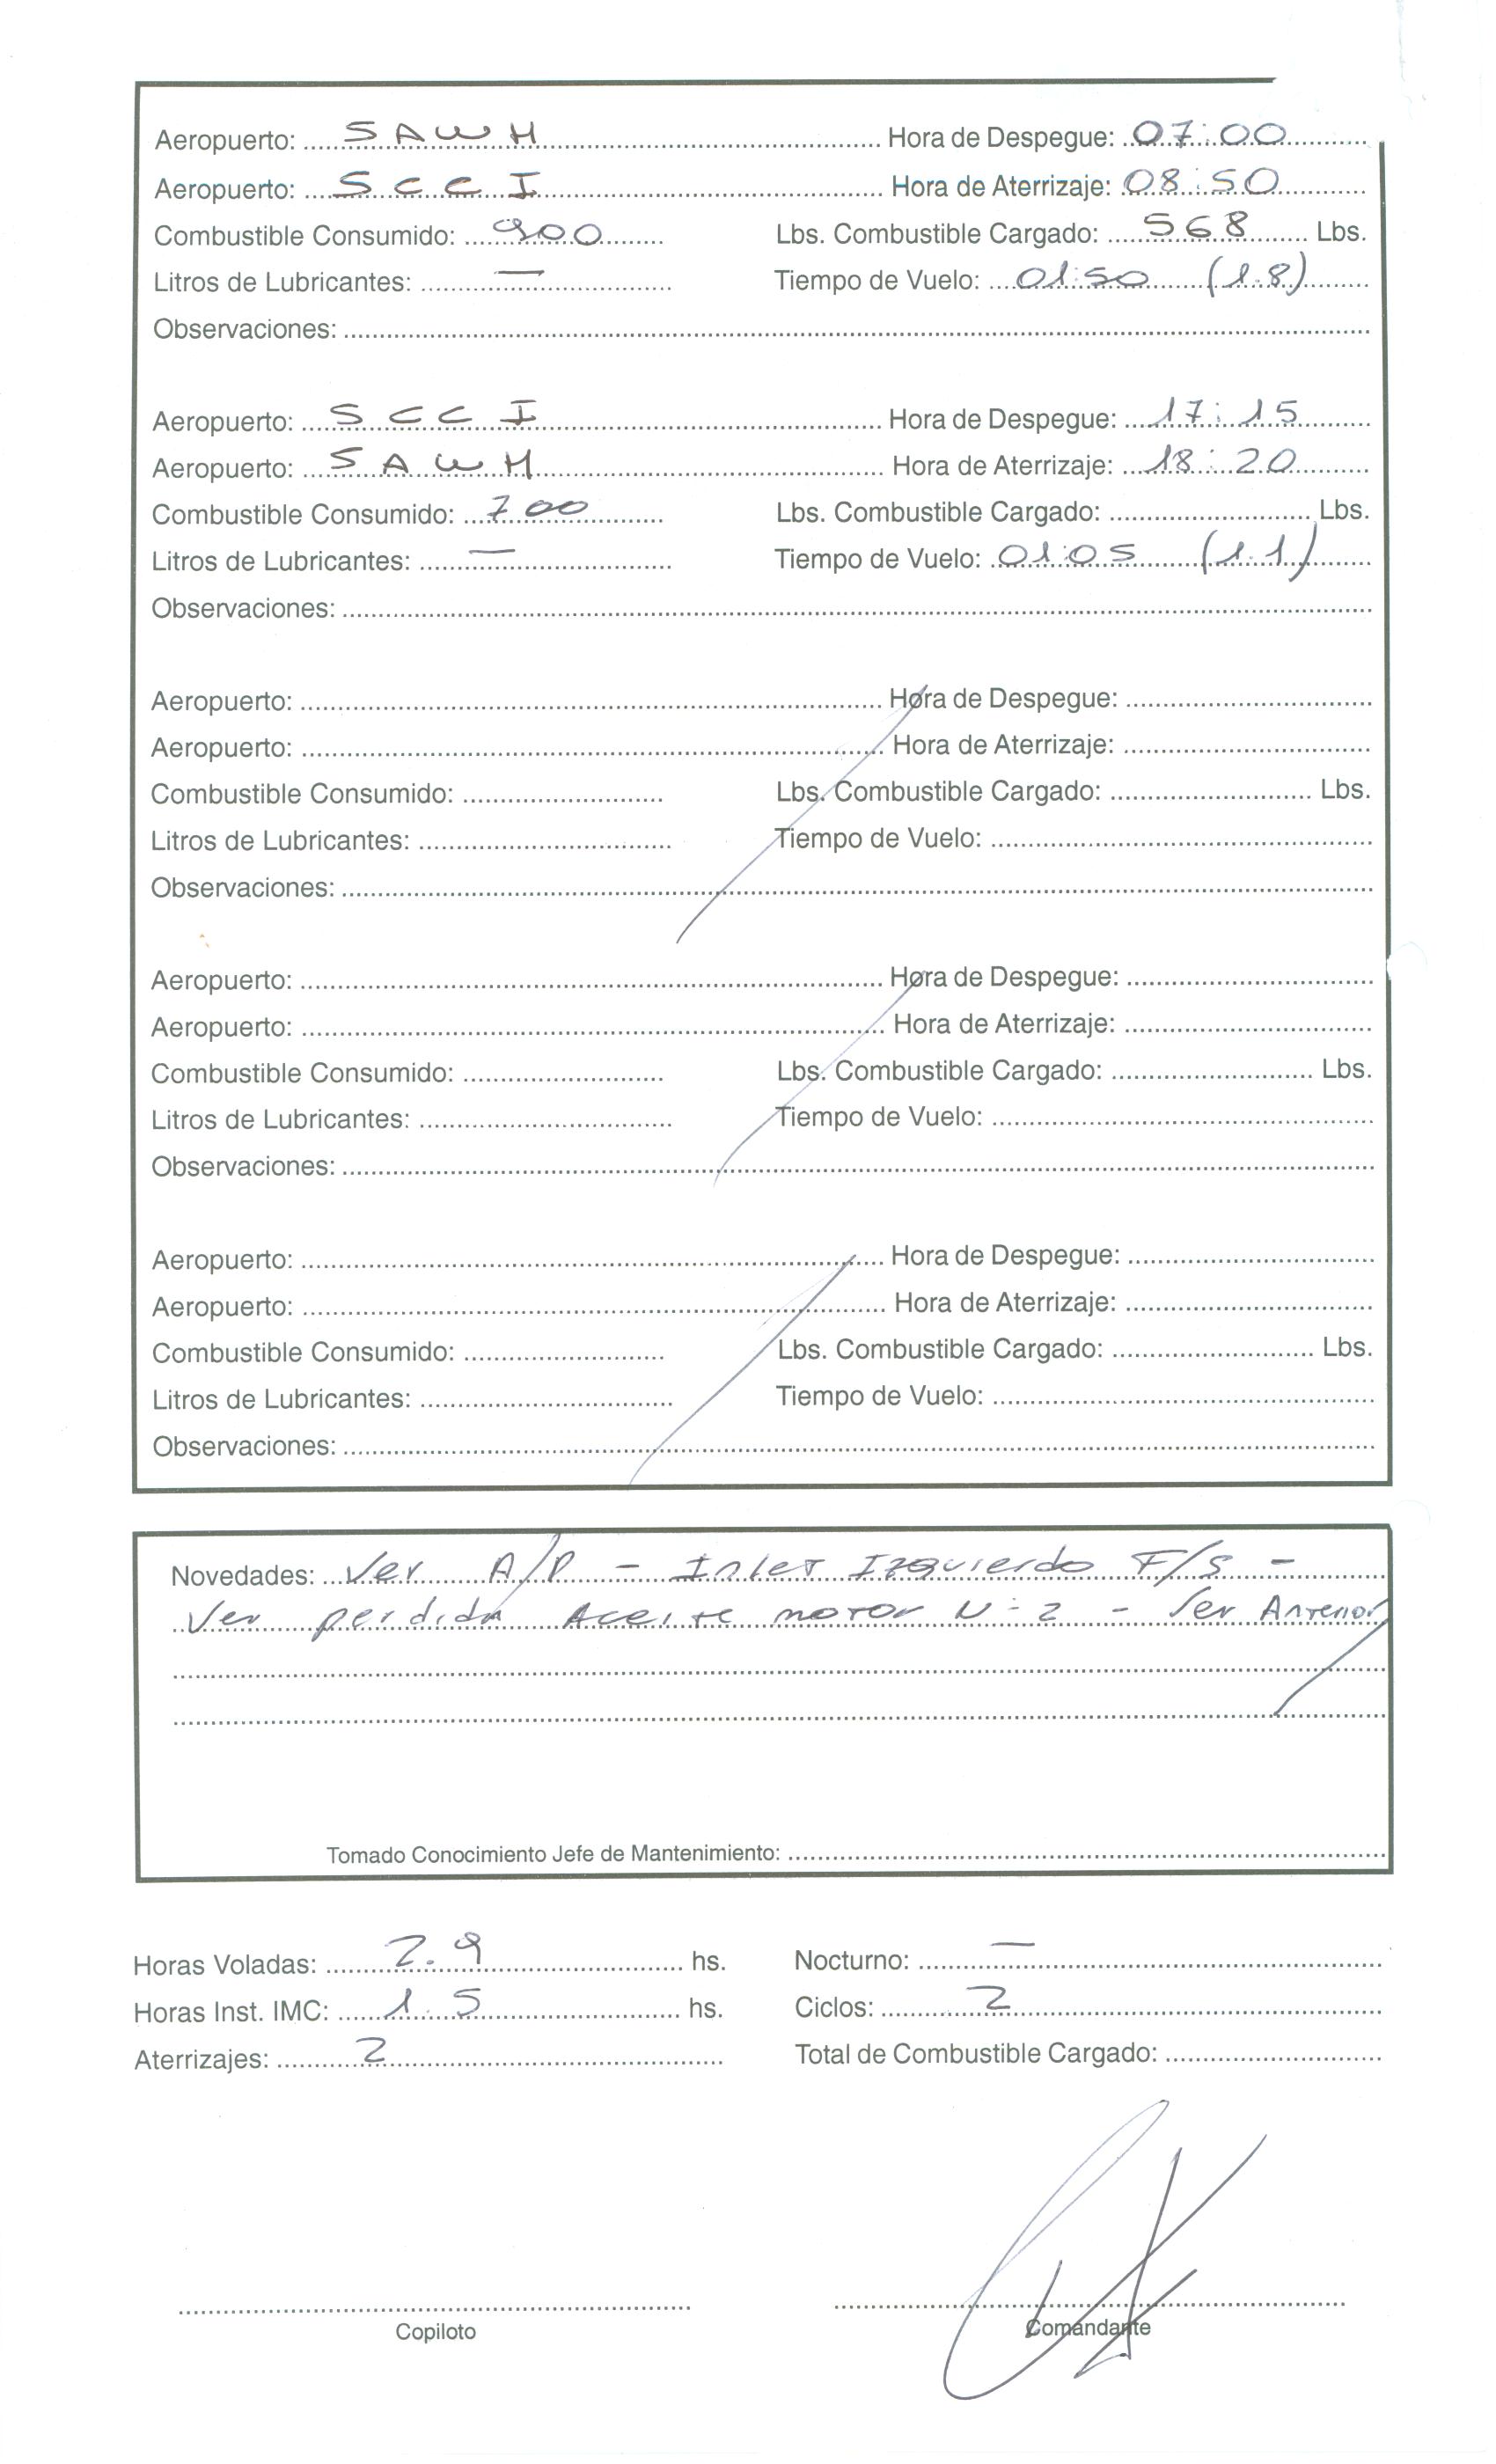 Aeropuerto: SAWH Hora de Despegue: 07:00
Aeropuerto: SCCI Hora de Aterrizaje: 08:50
Combustible Consumido: 900 Lbs. Combustible Cargado: 568 Lbs.
Litros de Lubricantes: — Tiempo de Vuelo: 01:50 (1.8)
Observaciones:
Aeropuerto: SCCI Hora de Despegue: 17:15
Aeropuerto: SAWH Hora de Aterrizaje: 18:20
Combustible Consumido: 700 Lbs. Combustible Cargado: Lbs.
Litros de Lubricantes: — Tiempo de Vuelo: 01:05 (1.1)
Observaciones:
Aeropuerto: Hora de Despegue:
Aeropuerto: Hora de Aterrizaje:
Combustible Consumido: Lbs. Combustible Cargado: Lbs.
Litros de Lubricantes: Tiempo de Vuelo:
Observaciones:
Aeropuerto: Hora de Despegue:
Aeropuerto: Hora de Aterrizaje:
Combustible Consumido: Lbs. Combustible Cargado: Lbs.
Litros de Lubricantes: Tiempo de Vuelo:
Observaciones:
Aeropuerto: Hora de Despegue:
Aeropuerto: Hora de Aterrizaje:
Combustible Consumido: Lbs. Combustible Cargado: Lbs.
Litros de Lubricantes: Tiempo de Vuelo:
Observaciones:
Novedades: Ver A/P - Inlet Izquierdo F/S -
Ver perdida Aceite motor N: 2 - Ver Anterior
Tomado Conocimiento Jefe de Mantenimiento:
Horas Voladas: 2.9 hs. Nocturno: —
Horas Inst. IMC: 1.5 hs. Ciclos: 2
Aterrizajes: 2 Total de Combustible Cargado:
Copiloto Comandante